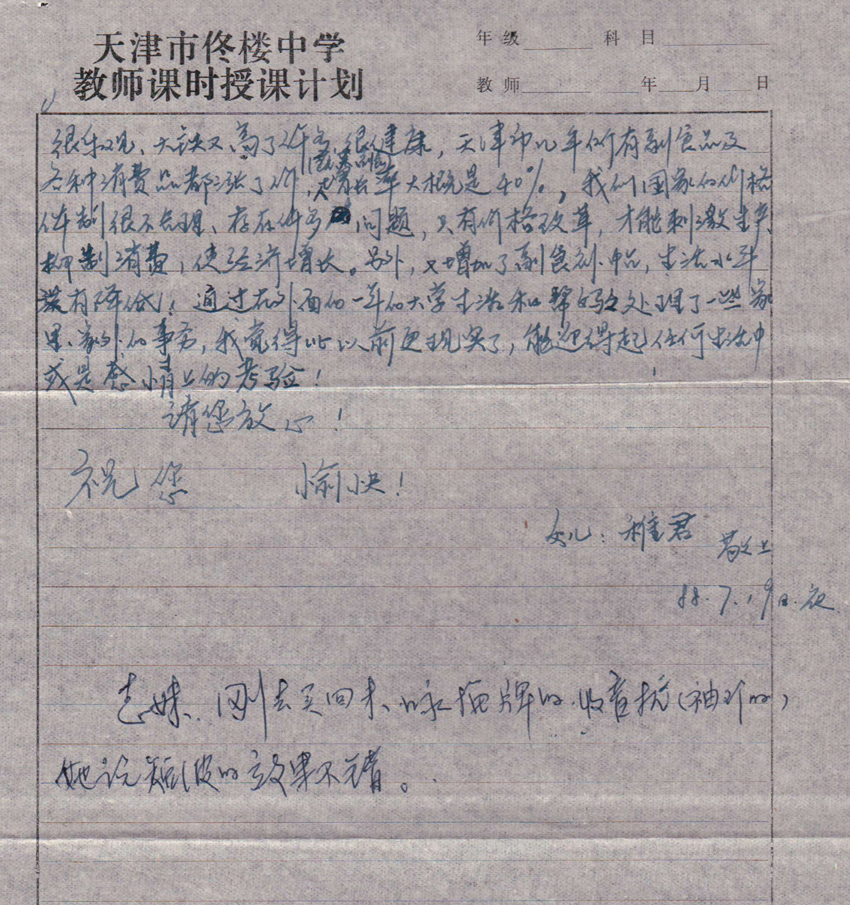 天津市佟楼中学
教师课时授课计划
年级 科目
教师 年 月 日
很乐观、大铁又高了许多,很健康,天津市几年所有副食品及
各种消费品都涨了价,增长率大概是40%,我们国家的价格
体制很不合理、存在许多问题,只有价格改革,才能刺激生产
抑制消费,使经济增长。另外,又增加了副食补贴,生活水平
没有降低!通过在外面的一年的大学生活和帮妈处理了一些家
里、家外的事务,我觉得比以前更现实了,能迎得起任何生活中
或是感情上的考验!
请您放心!
祝您 愉快!
女儿:稚君 敬上
88.7.19日.夜
志妹、刚去买回来、咏梅牌的收音机(袖珍的)
她说短波的效果不错。